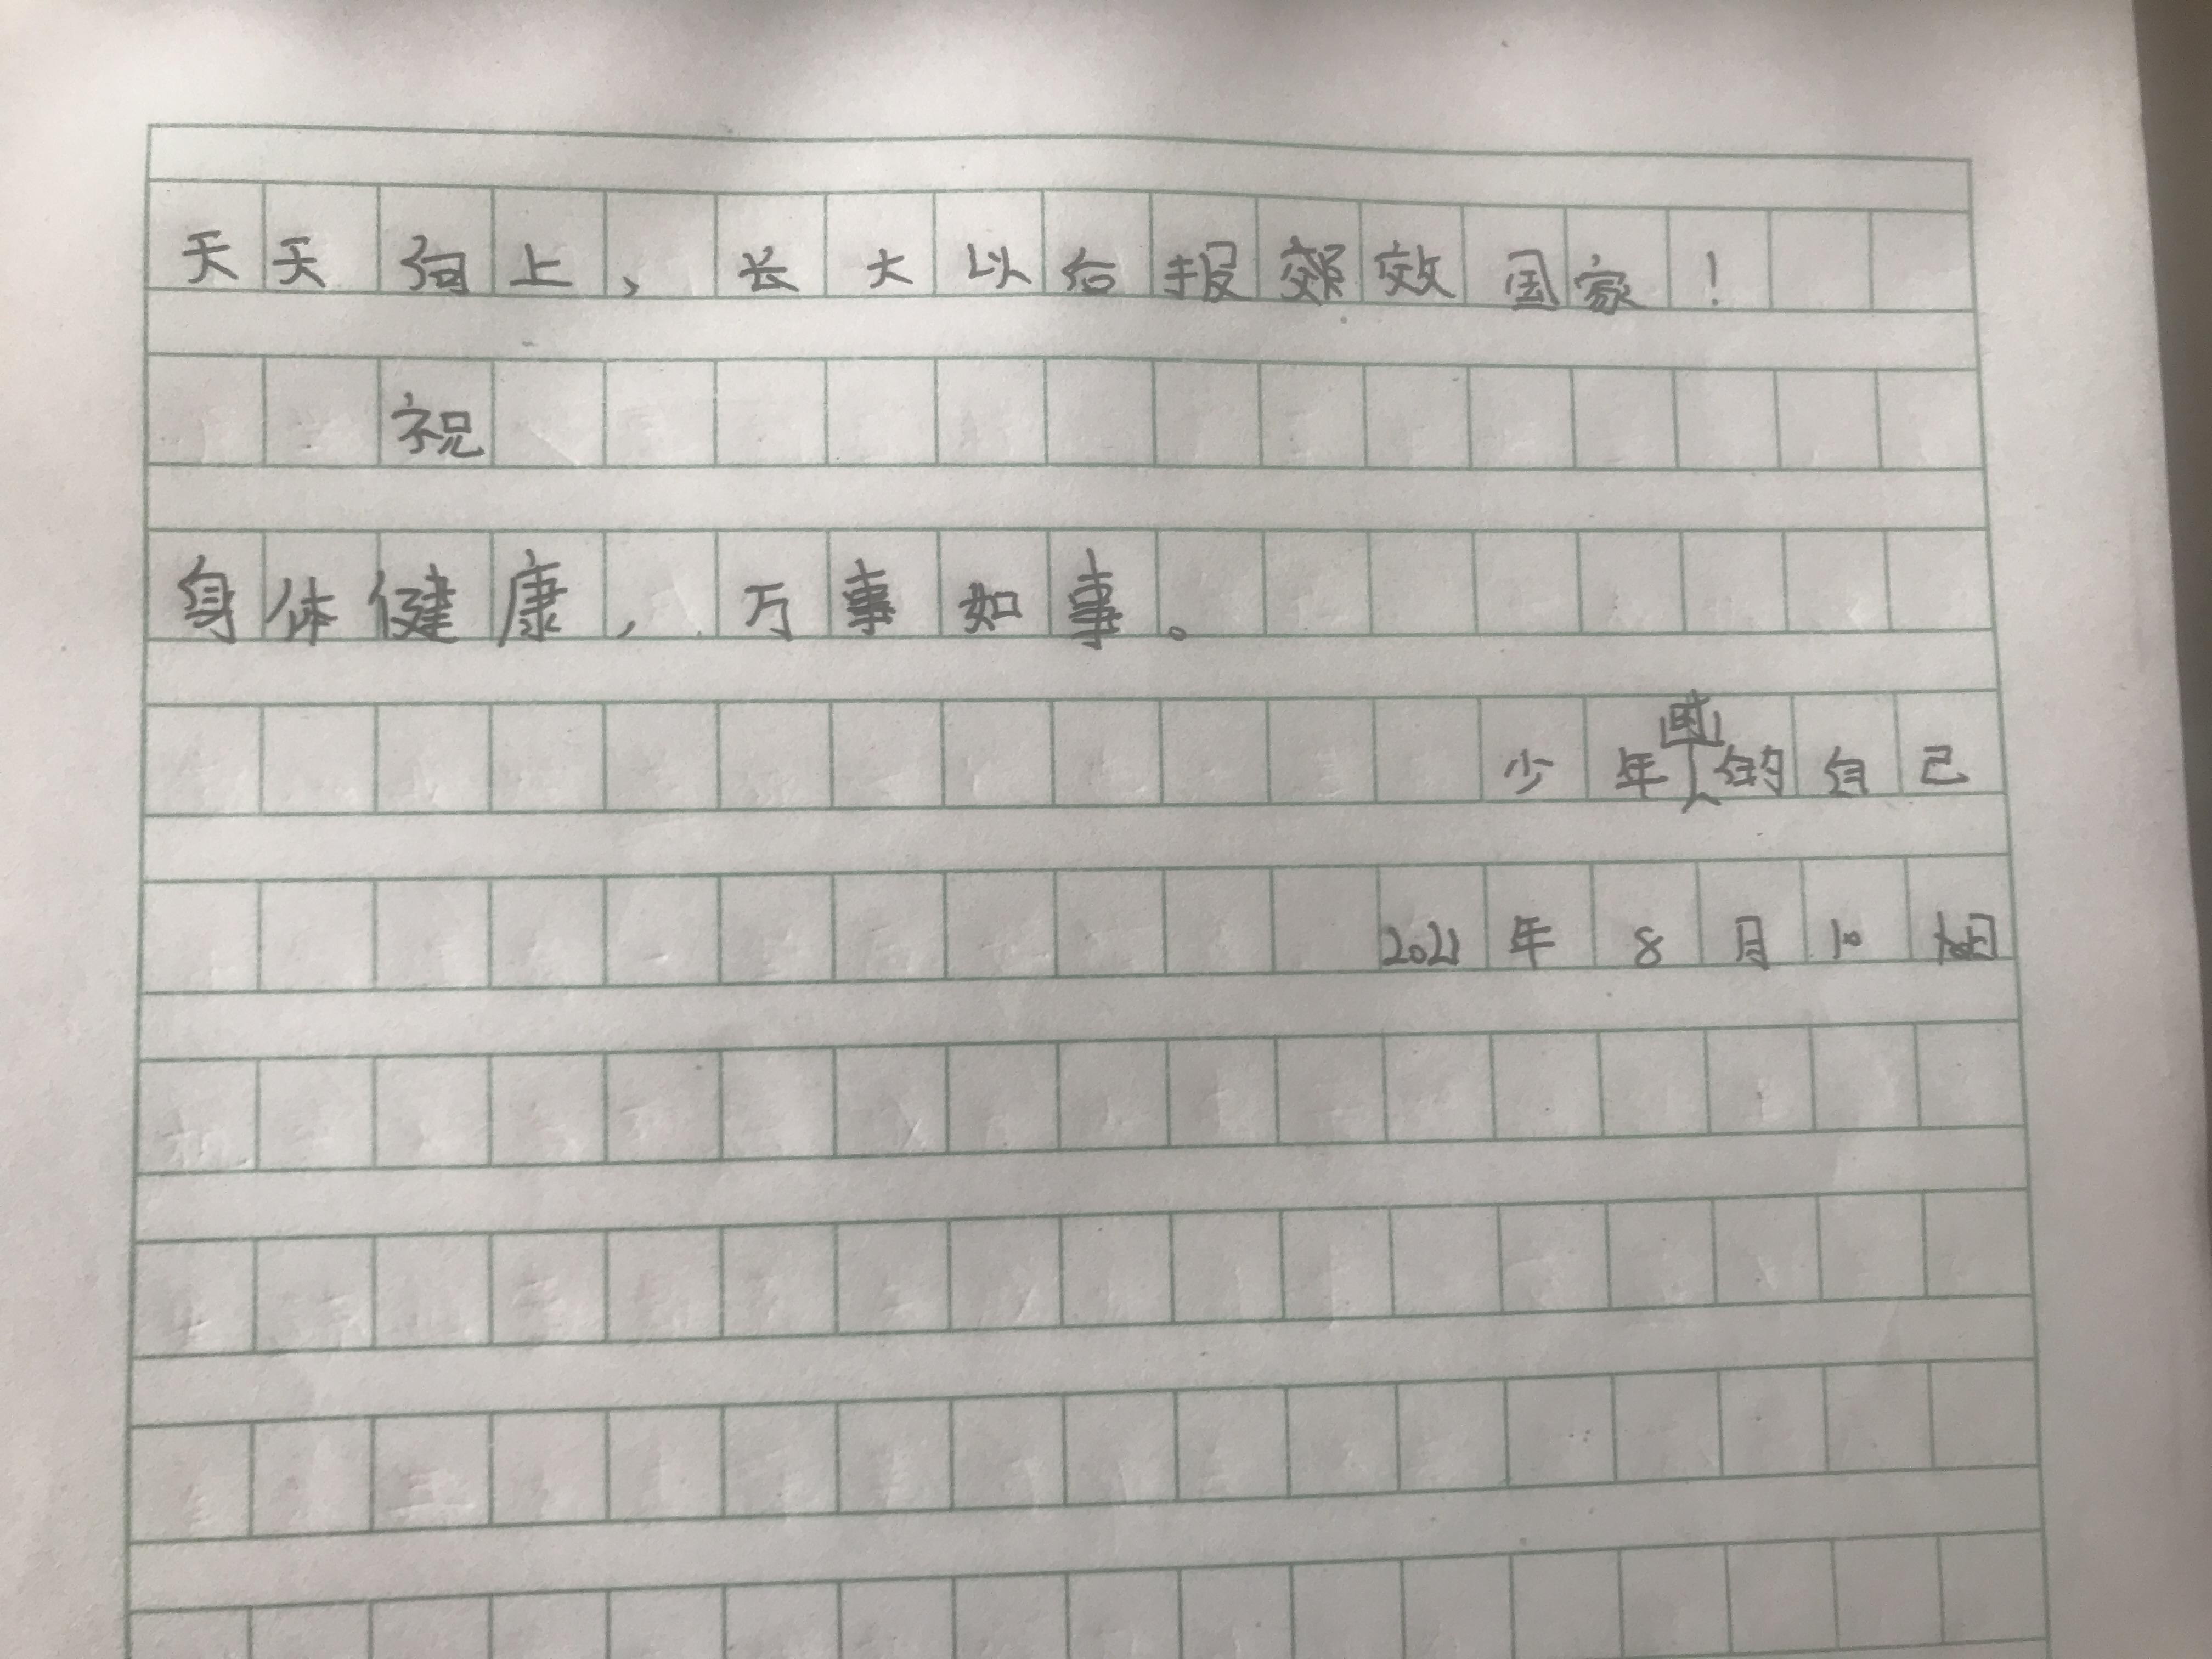 天天向上，长大以后报效国家！
祝
身体健康，万事如事。
少年时的自己
2021年8月10日